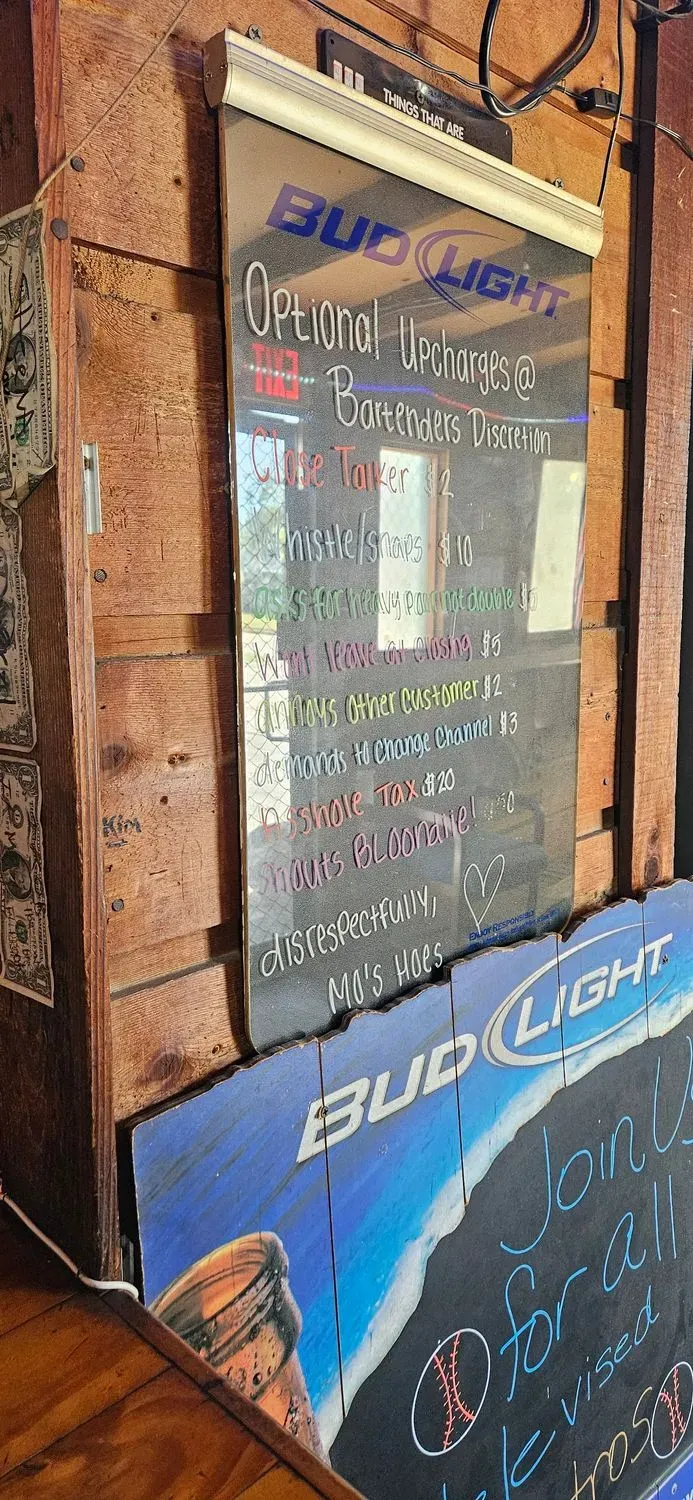 THINGS THAT ARE
BUD LIGHT
Optional Upcharges @
EXIT
Bartenders Discretion
Close Talker $2
Whistle/snaps $10
asks for heavy pour not double $5
Wont leave at closing $5
annoys other customer $2
demands to change channel $3
Asshole Tax $20
shouts BLOONDIIE! $50
disrespectfully,
Mo's Hoes
ENJOY RESPONSIBLY
Kim
BUD LIGHT
Join Us
for all
televised